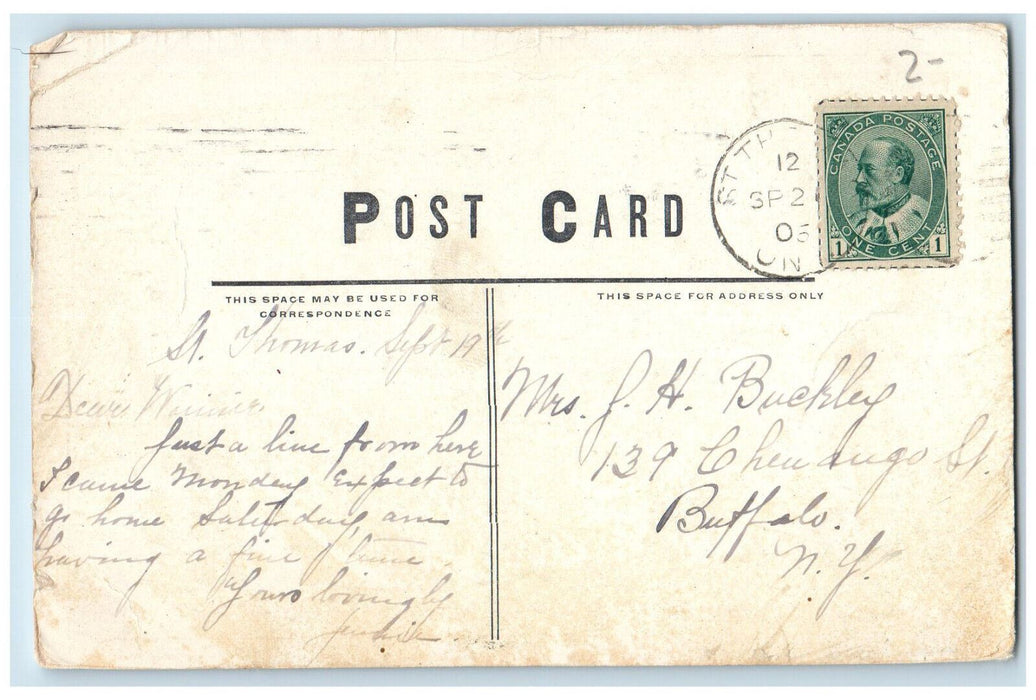 2-
ST TH
12
SP 2
ON
CANADA POSTAGE
1 ONE CENT 1
POST CARD
THIS SPACE MAY BE USED FOR
CORRESPONDENCE
St. Thomas. Sept 19th
Dear Winnie
Just a line from here
I came Monday Expect to
go home Saturday, am
having a fine time.
Yours lovingly
THIS SPACE FOR ADDRESS ONLY
Mrs. J. H. Buckley
139 Chenango St.
Buffalo.
N. Y.